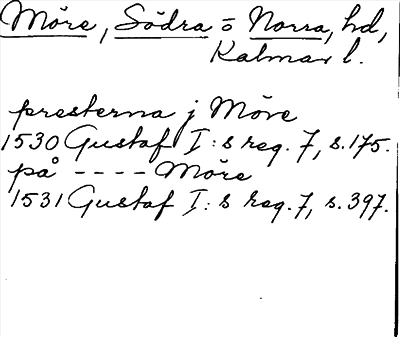 Möre, Södra o Norra, hd,
Kalmar l.
presterna j Möre
1530 Gustaf I:s reg. 7, s. 175.
på ---- Möre
1531 Gustaf I:s reg. 7, s. 397.